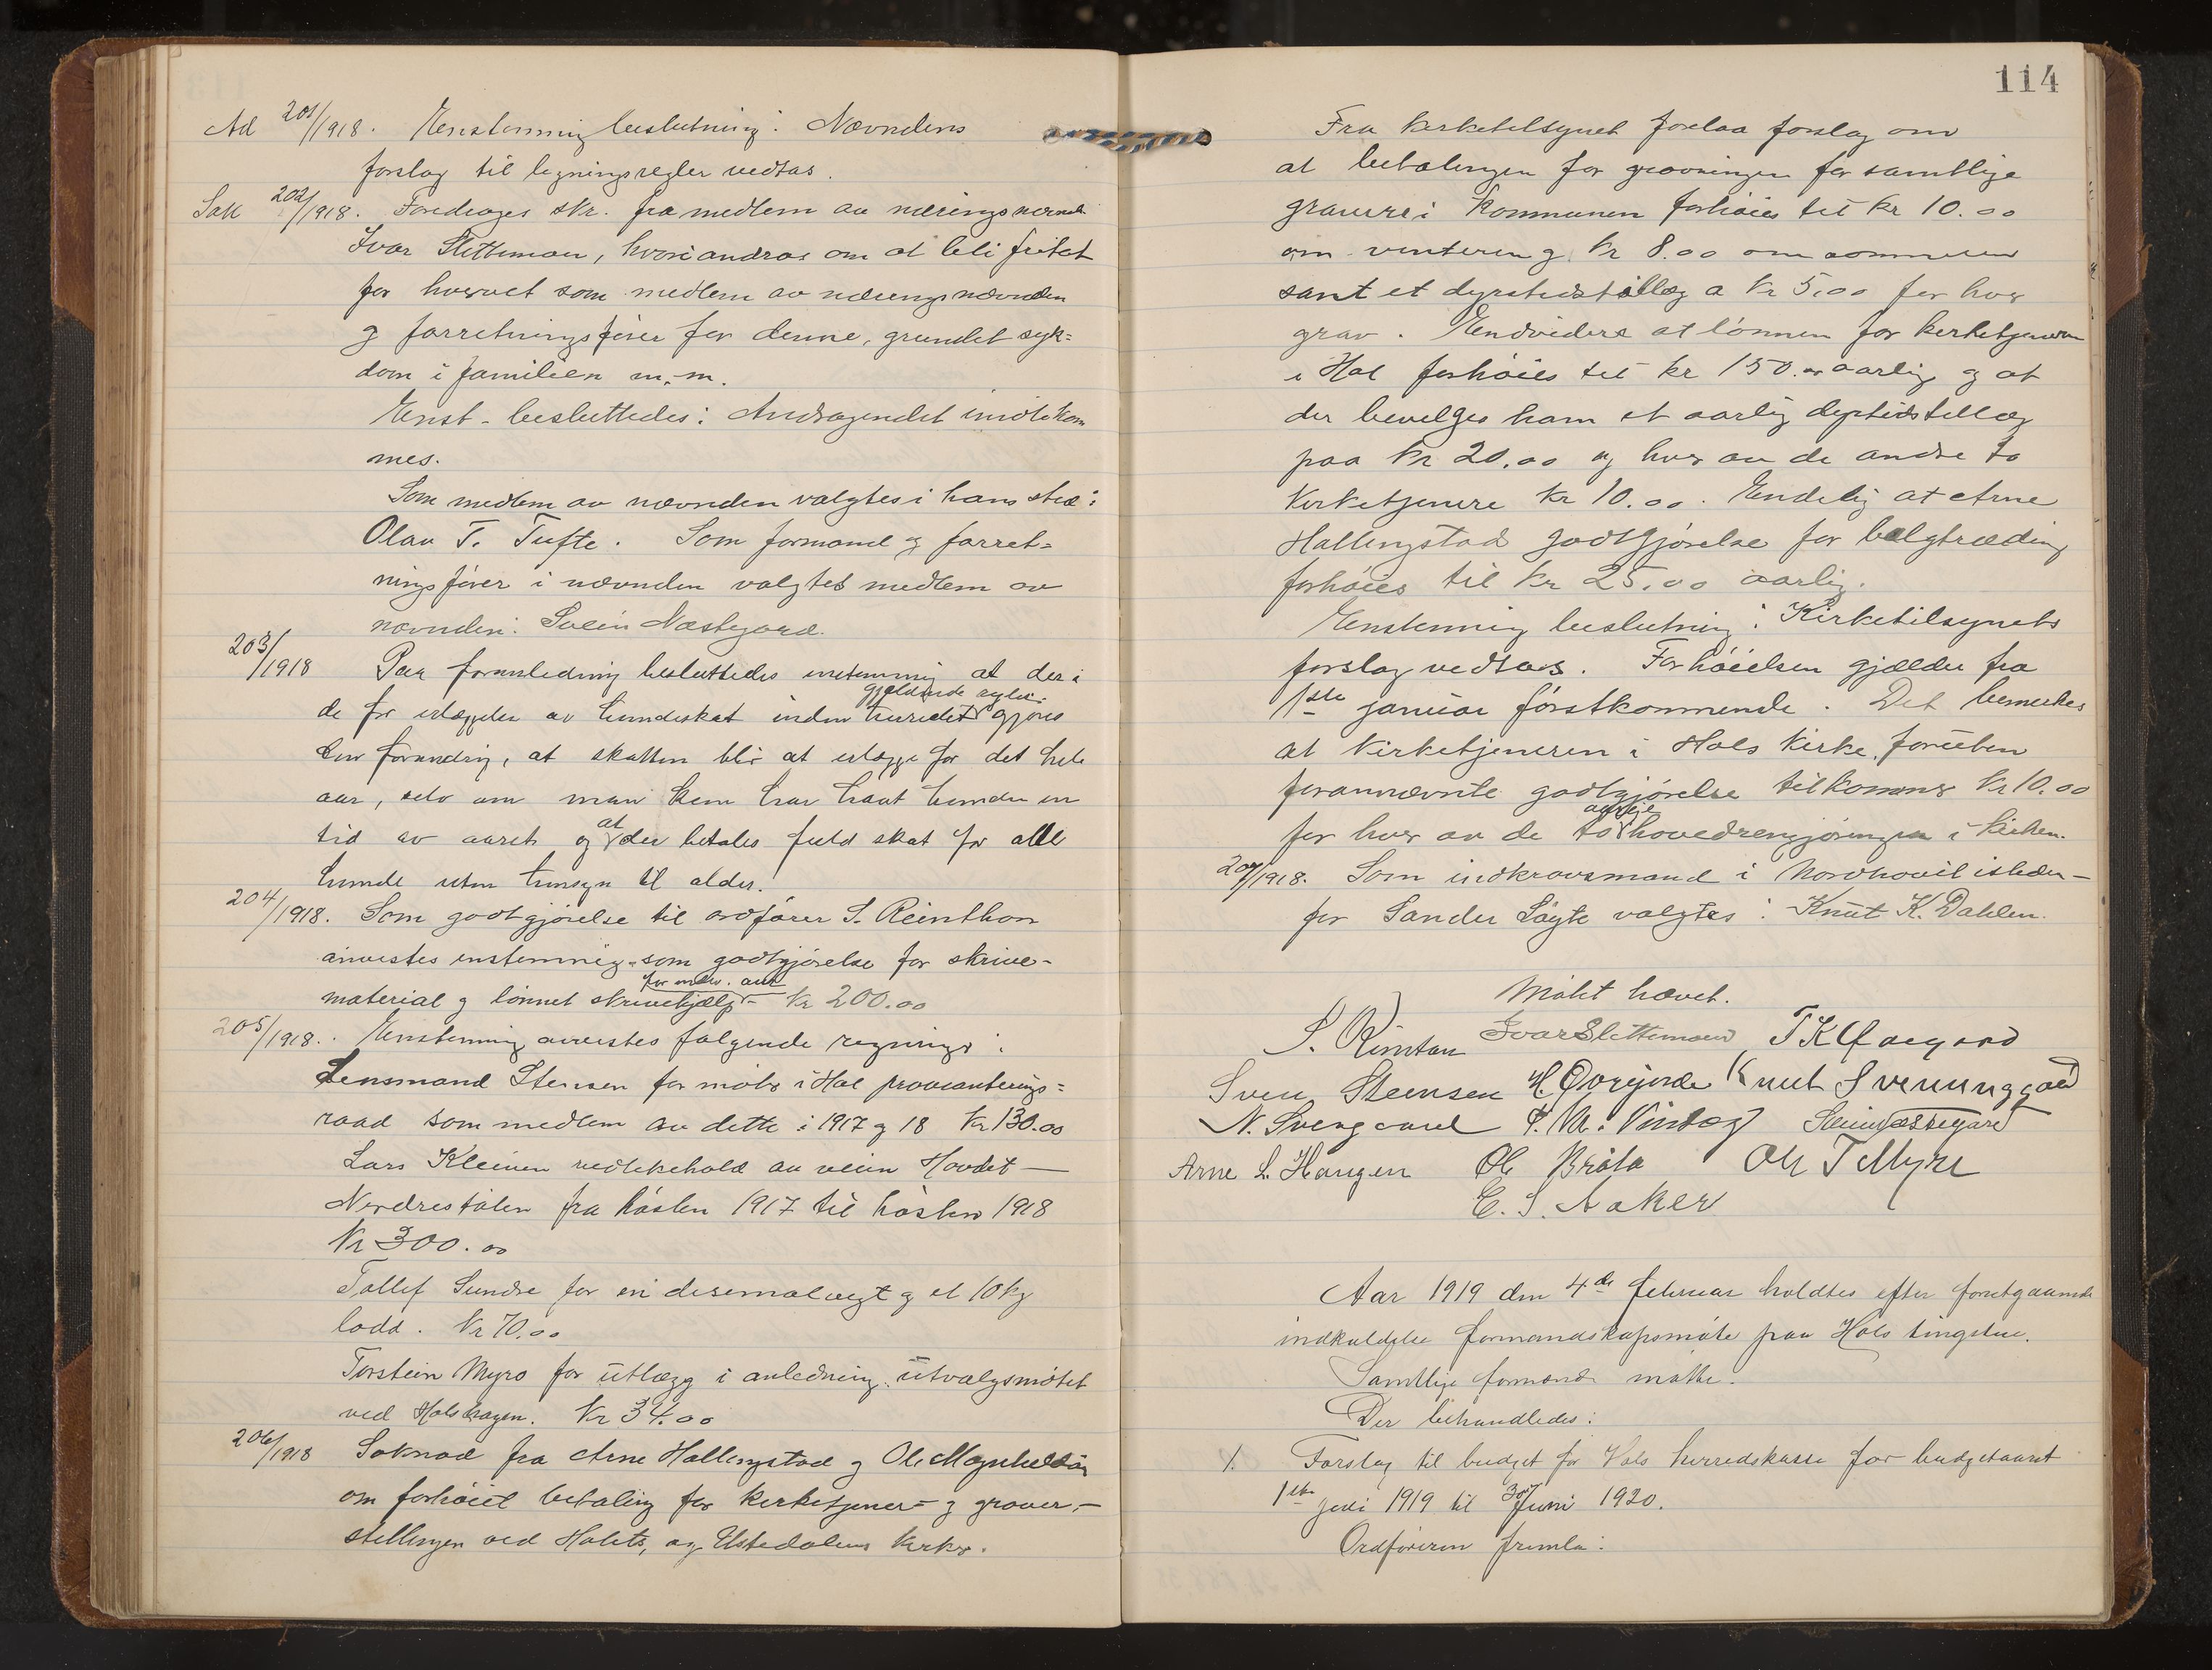 Ad 201/1918. Enstemmig beslutning: Nævndens
forslag til ligningsregler vedtas.
Sak 202/1918. Foredroges skr. fra medlem av næringsnævnd
Ivar Slettemoen, hvori andras om at bli fritat
for hvervet som medlem av næringsnævnden
g forretningsfører for denne, grundet syk=
dom i familien m.m.
Enst. besluttedes: Andragendet imøtekom
mes.
Som medlem av nævnden valgtes i hans sted:
Olav T. Tufte. Som formand g forret=
ningsfører i nævnden valgtes medlem av
nævnden: Svein Næstegard.
203/1918 Paa foranledning besluttedes enstemmig at der i
de for erlæggelse av hundeskat inden herredet gjældende regler gjøres
den forandring, at skatten blir at erlægge for det hele
aar, selv om man kun har havt hunden en
tid av aaret og at der betales fuld skat for alle
hunde uten hensyn til alder.
204/1918. Som godtgjørelse til ordfører S. Reinthon
anvistes enstemmig som godtgjørelse for skrive-
material g lønnet skrivehjælp for indev. aar kr 200.00
205/1918. Enstemmig anvistes følgende regninger:
Lensmand Steensen for møter i Hol provianterings=
raad som medlem av dette i 1917 g 18 Kr 130.00
Lars Kleiven vedlikehold av veien Hovdet —
Nerdrestølen fra høsten 1917 til høsten 1918
Kr 300.00
Tollef Sundre for en desemalvegt g et 10 kg
lodd. Kr 70.00
Torstein Myro for utlægg i anledning utvalgsmøtet
ved Holshagen. Kr 34.00
206/1918 Søknad fra Arne Hallingstad g Ole Magnheldsøn
om forhøiet betaling for kirketjener= g graver-
stillingen ved Hols, og Ustedalens kirker.
114
Fra kirketilsynet forelaa forslag om
at betalingen for gravningen for samtlige
gravere i kommunen forhøies til kr 10.00
om vinteren g kr 8.00 om sommeren
samt et dyrtidstillæg a kr 5,00 for hver
grav. Endvidere at lønnen for kirketjeneren
i Hol forhøies til kr 150.00 aarlig g at
der bevilges ham et aarlig dyrtidstillæg
paa kr 20.00 og hver av de andre to
kirketjenere kr 10.00. Endelig at Arne
Hallingstad godtgjørelse for belgtræding
forhøies til kr 25.00 aarlig.
Enstemmig beslutning: Kirketilsynets
forslag vedtaes. Forhøielsen gjælder fra
1ste januar førstkommende. Det bemerkes
at kirketjeneren i Hols kirke, foruten
forannævnte godtgjørelse tilkommer kr 10.00
for hver av de to aarlige hovedrengjøringer i kirken.
207/1918. Som indkravsmand i Nordhovil isteden-
for Sander Løyte valgtes: Knut K. Dahlen.
Møtet hævet.
S. Reinton Ivar Slettemoen T K Aasgaard
Sven Steensen H. Øvregarde Knut Svenunggard
N. Svengaard Svein Næstegard
Arne L. Haugen Ol Bråta Ole T Myre
E. S. Aaker
Aar 1919 den 4de februar holdtes efter forutgaaende
indkaldelse formandskapsmøte paa Hols tingstue.
Samtlige formænd møtte.
Der behandledes:
1. Forslag til budget for Hols herredskasse for budgetaaret
1ste juli 1919 til 30te Juni 1920.
Ordføreren fremla: